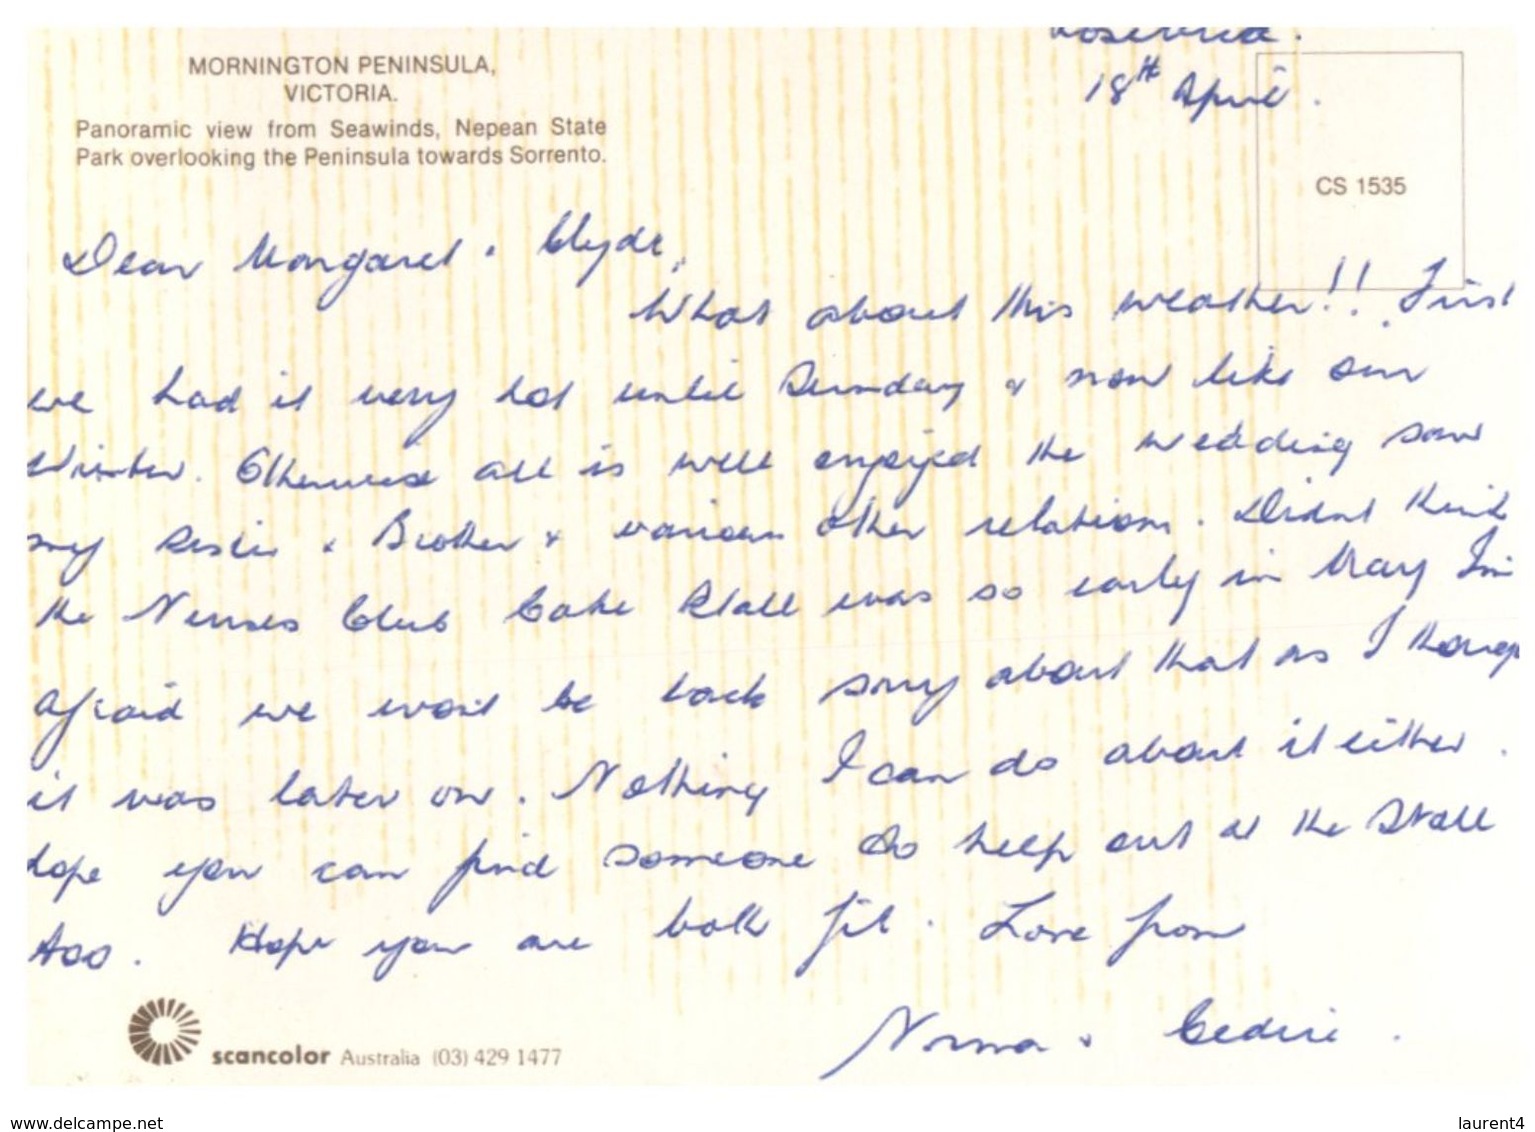 MORNINGTON PENINSULA,
VICTORIA.
Panoramic view from Seawinds, Nepean State
Park overlooking the Peninsula towards Sorrento.
18th April.
CS 1535
Dear Margaret & Clyde,
What about this weather!! First
we had it very hot until Sunday & now like our
Winter. Otherwise all is well enjoyed the wedding saw
my sister & Brother & various other relations. Didnt think
the Nurses Club Cake Stall was so early in May Im
afraid we wont be back sorry about that as I though
it was later on. Nothing I can do about it either.
hope you can find someone to help out at the Stall
too. Hope you are both fit. Love from
Norma & Cedric.
scancolor Australia (03) 429 1477
www.delcampe.net
laurent4